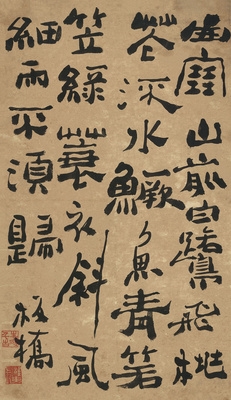 西塞山前白鷺飛桃
花流水鱖魚青箬
笠綠蓑衣斜風
細雨不須歸
板橋